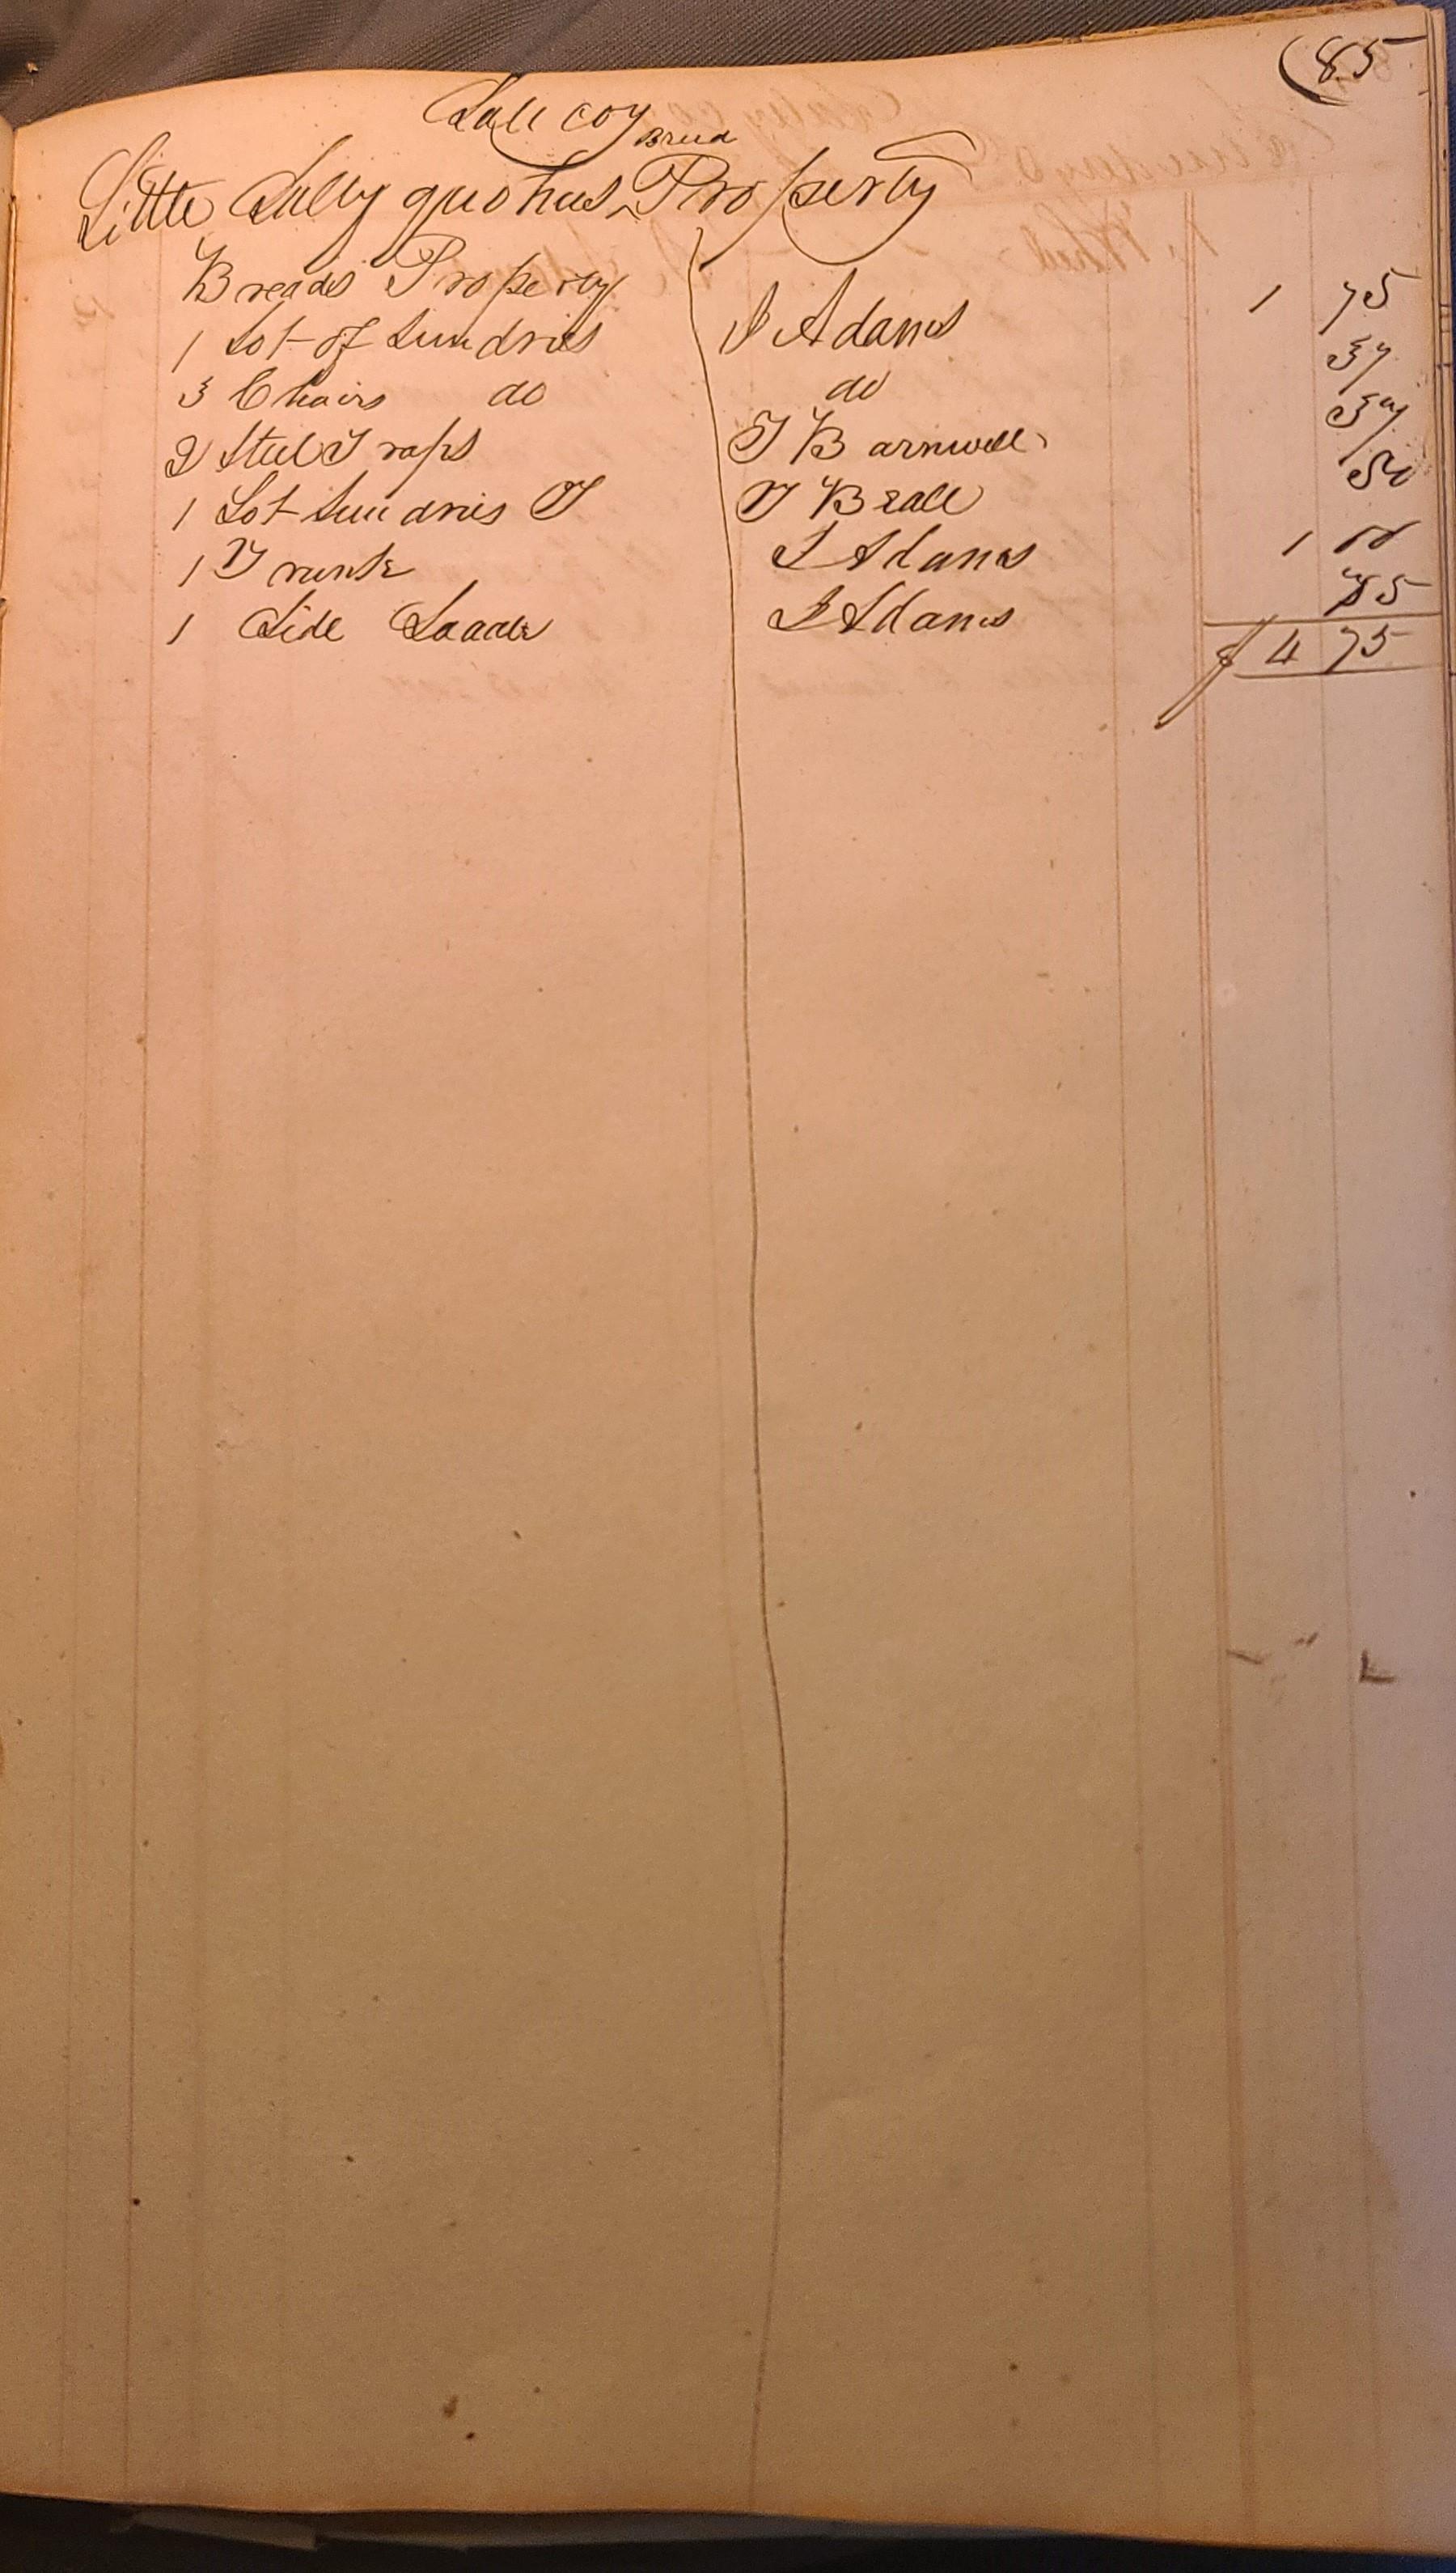 (85
Sallicoy
Bread
Little Sally quohus ^ Property
Breads Property
1 Lot of Sundries J Adams 1 75
3 Chairs do do 37
2 Steel Traps T Barnwell 37
1 Lot Sundries T T Beall 50
1 Trunk J Adams 1 00
1 Side Saddle J Adams 75
$ 4 75